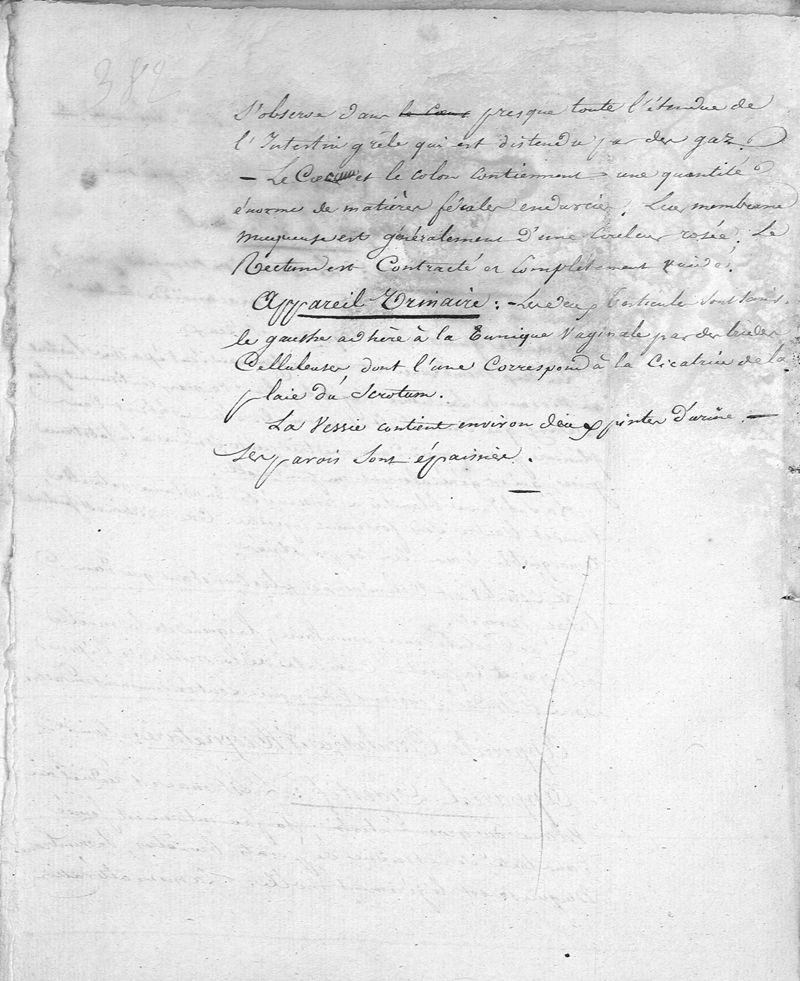 382
S'observe dans le Cœur presque toute l'étendue de
l'Intestin grêle qui est distendu par des gaz
— Le Cœcum et le colon contiennent une quantité
énorme de matières fécales endurcie, Leur membrane
muqueuse est généralement d'une Couleur rosée; Le
Rectum est Contracté et complètement vuide.
Appareil Urinaire : - Les deux testicules sont sains.
le gauche adhère à la Tunique Vaginale par des brides
Celluleuses dont l'une Correspond à la Cicatrice de la
plaie du Scrotum.
La Vessie contient environ deux pintes d'urine —
Ses parois sont épaissies.